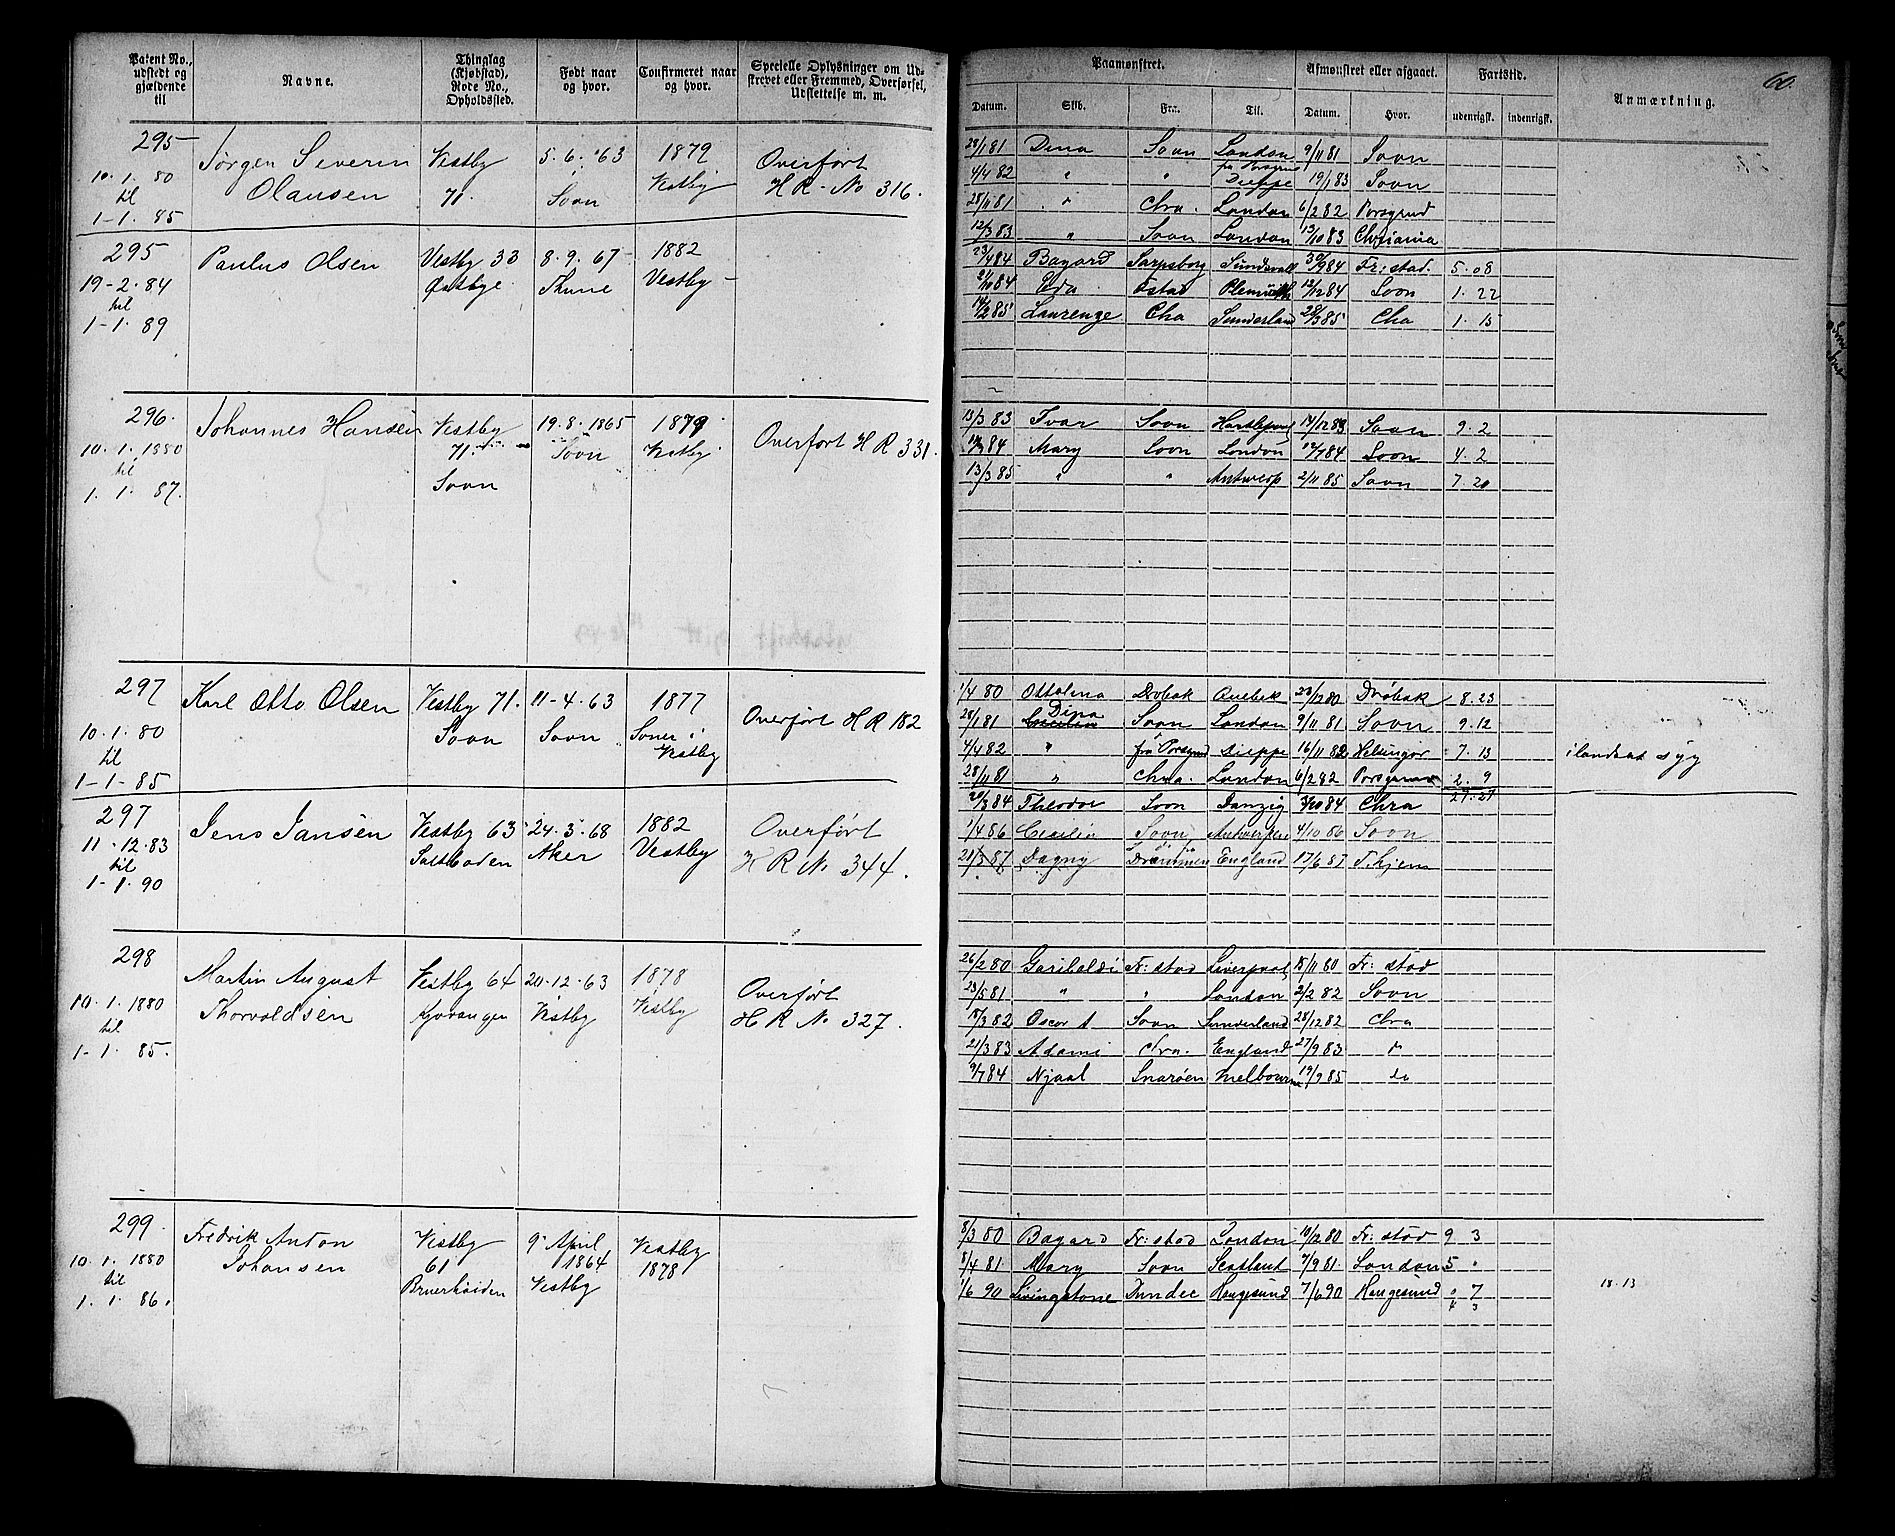 Patent No., udstedt og gjældende til
Navne.
Thinglag (Kjøbstad), Rode No., Opholdssted.
Født naar og hvor.
Confirmeret naar og hvor.
Specielle Oplysninger om Udskrevet eller Fremmed, Overførsel, Udslettelse m. m.
295
Jørgen Severin Vestby 5. 6. 63 1879 Overført
10. 1. 80 Olausen 71. Soon Vestby H R - No 316.
til
1-1. 85
295
Paulus Olsen Vestby 33 8. 9. 67 1882
19-2. 84 Thune Vestby
til
1-1. 89
296.
Johannes Hansen Vestby 19. 8. 1865 1879 Overført H R 331.
10. 1. 1880 71. Soon Vestby
til
1. 1. 87. Soon
297
Karl Otto Olsen Vestby 71. 11-4. 63 1877 Overført H R 182
10. 1. 80 Soon Soon Soner i
til Vestby
1-1-85
297
Jens Jansen Vestby 63 24. 3. 68 1882 Overført
11. 12. 83 Saltboden Aker Vestby H R No 344.
til
1-1. 90
298
Martin August Vestby 64 20. 12. 63 1878 Overført
10. 1. 1880 Thorvaldsen Vestby Vestby H R No 327.
til
1-1. 85.
299.
Fredrik Anton Vestby 9 April Vestby
10. 1. 1880 Johansen 61 1864 1878
til Vestby
1. 1. 86.
60.
Paamønstret.
Afmønstret eller afgaaet.
Fartstid.
Anmærkning.
Datum. Skib. Fra: Til. Datum. Hvor. udenrigsk. indenrigsk.
28/1 81 Dina Soon London 9/11 81 Soon
fra Porsgrund
4/4 82 " " Dieppe 19/1 83 Soon
28/11 81 " Chra. London 6/2 82 Porsgrund
12/3 83 " Soon London 13/10 83 Christiania
23/4 84 Bayard Sarpsborg Sundsvall 30/9 84 Fr: stad. 5. 08
Eda 12/12 84 Soon 1. 22
14/2 85 Laurenze Cha Sunderland 28/3 85 Cha 1. 15
13/3 83 Ivar Soon Hartlepool 14/12 83 Soon 9. 2
Mary Soon London 12/7 84 Soon 4. 2
13/3 85 " " Antwerp 2/11 85 Soon 7. 20
1/4 80 Ottolina Drøbak Quebek 23/12 80 Drøbak 8. 23
28/1 81 Dina Soon London 9/11 81 Soon 9. 12
4/4 82 " fra Porsgrund Dieppe 16/11 82 Helsingør 7. 13 ilandsat syg
28/11 81 " Chra. London 6/2 82 Porsgrund 2. 9
27. 27
20/3 84 Theodor Soon Danzig 3/10 84 Chra
1/4 86 Cecilia Soon Antwerpen 4/10 86 Soon
21/3 87 Dagny Drammen England 17/6 87 T. hjem
26/2 80 Garibaldi Fr: stad Liverpool 18/11 80 Fr: stad
23/5 81 " " London 2/2 82 Soon
18/3 82 Oscar I Soon Sunderland 28/12 82 Chra
21/3 83 Adami Chra. England 27/9 83 "
9/7 84 Njaal Snarøen Melbourne 19/9 85 do
8/3 80 Bayard Fr: stad London 10/12 80 Fr: stad 9 3
8/4 81 Mary Soon Scotland 7/9 81. London 5 "
1/6 90 Livingstone Dundee Haugesund 7/6 90 Haugesund " 7
18. 13